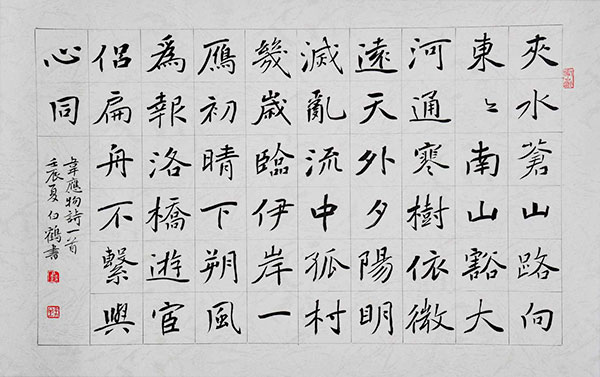 夾水蒼山路向
東〻南山豁大
河通寒樹依微
遠天外夕陽明
滅亂流中孤村
幾歲臨伊岸一
鴈初晴下朔風
為報洛橋遊宦
侶扁舟不繫與
心同
韋應物詩一首
壬辰夏白鶴書